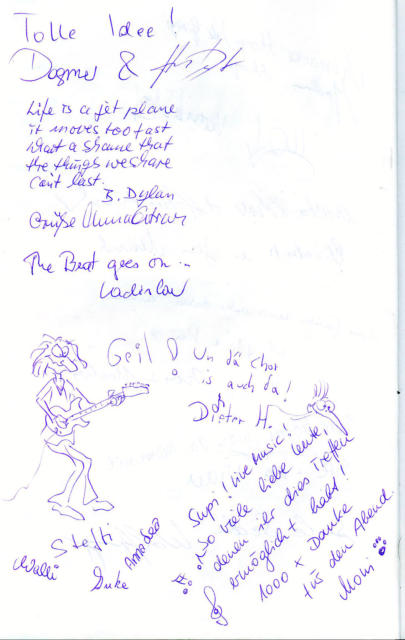 Tolle Idee!
Dagmar &
Life is a jet plane
it moves too fast
what a shame that
the things we share
can't last.
B. Dylan
Grüße
The Beat goes on...
Ladislav
Geil! Un dä Chor
is auch da!
Dieter H.
Supi! Live music!
So viele liebe Leute,
denen ihr dies Treffen
ermöglicht habt!
1000 x Danke
für den Abend.
Moni
Steffi
Walli Duke Amadeo